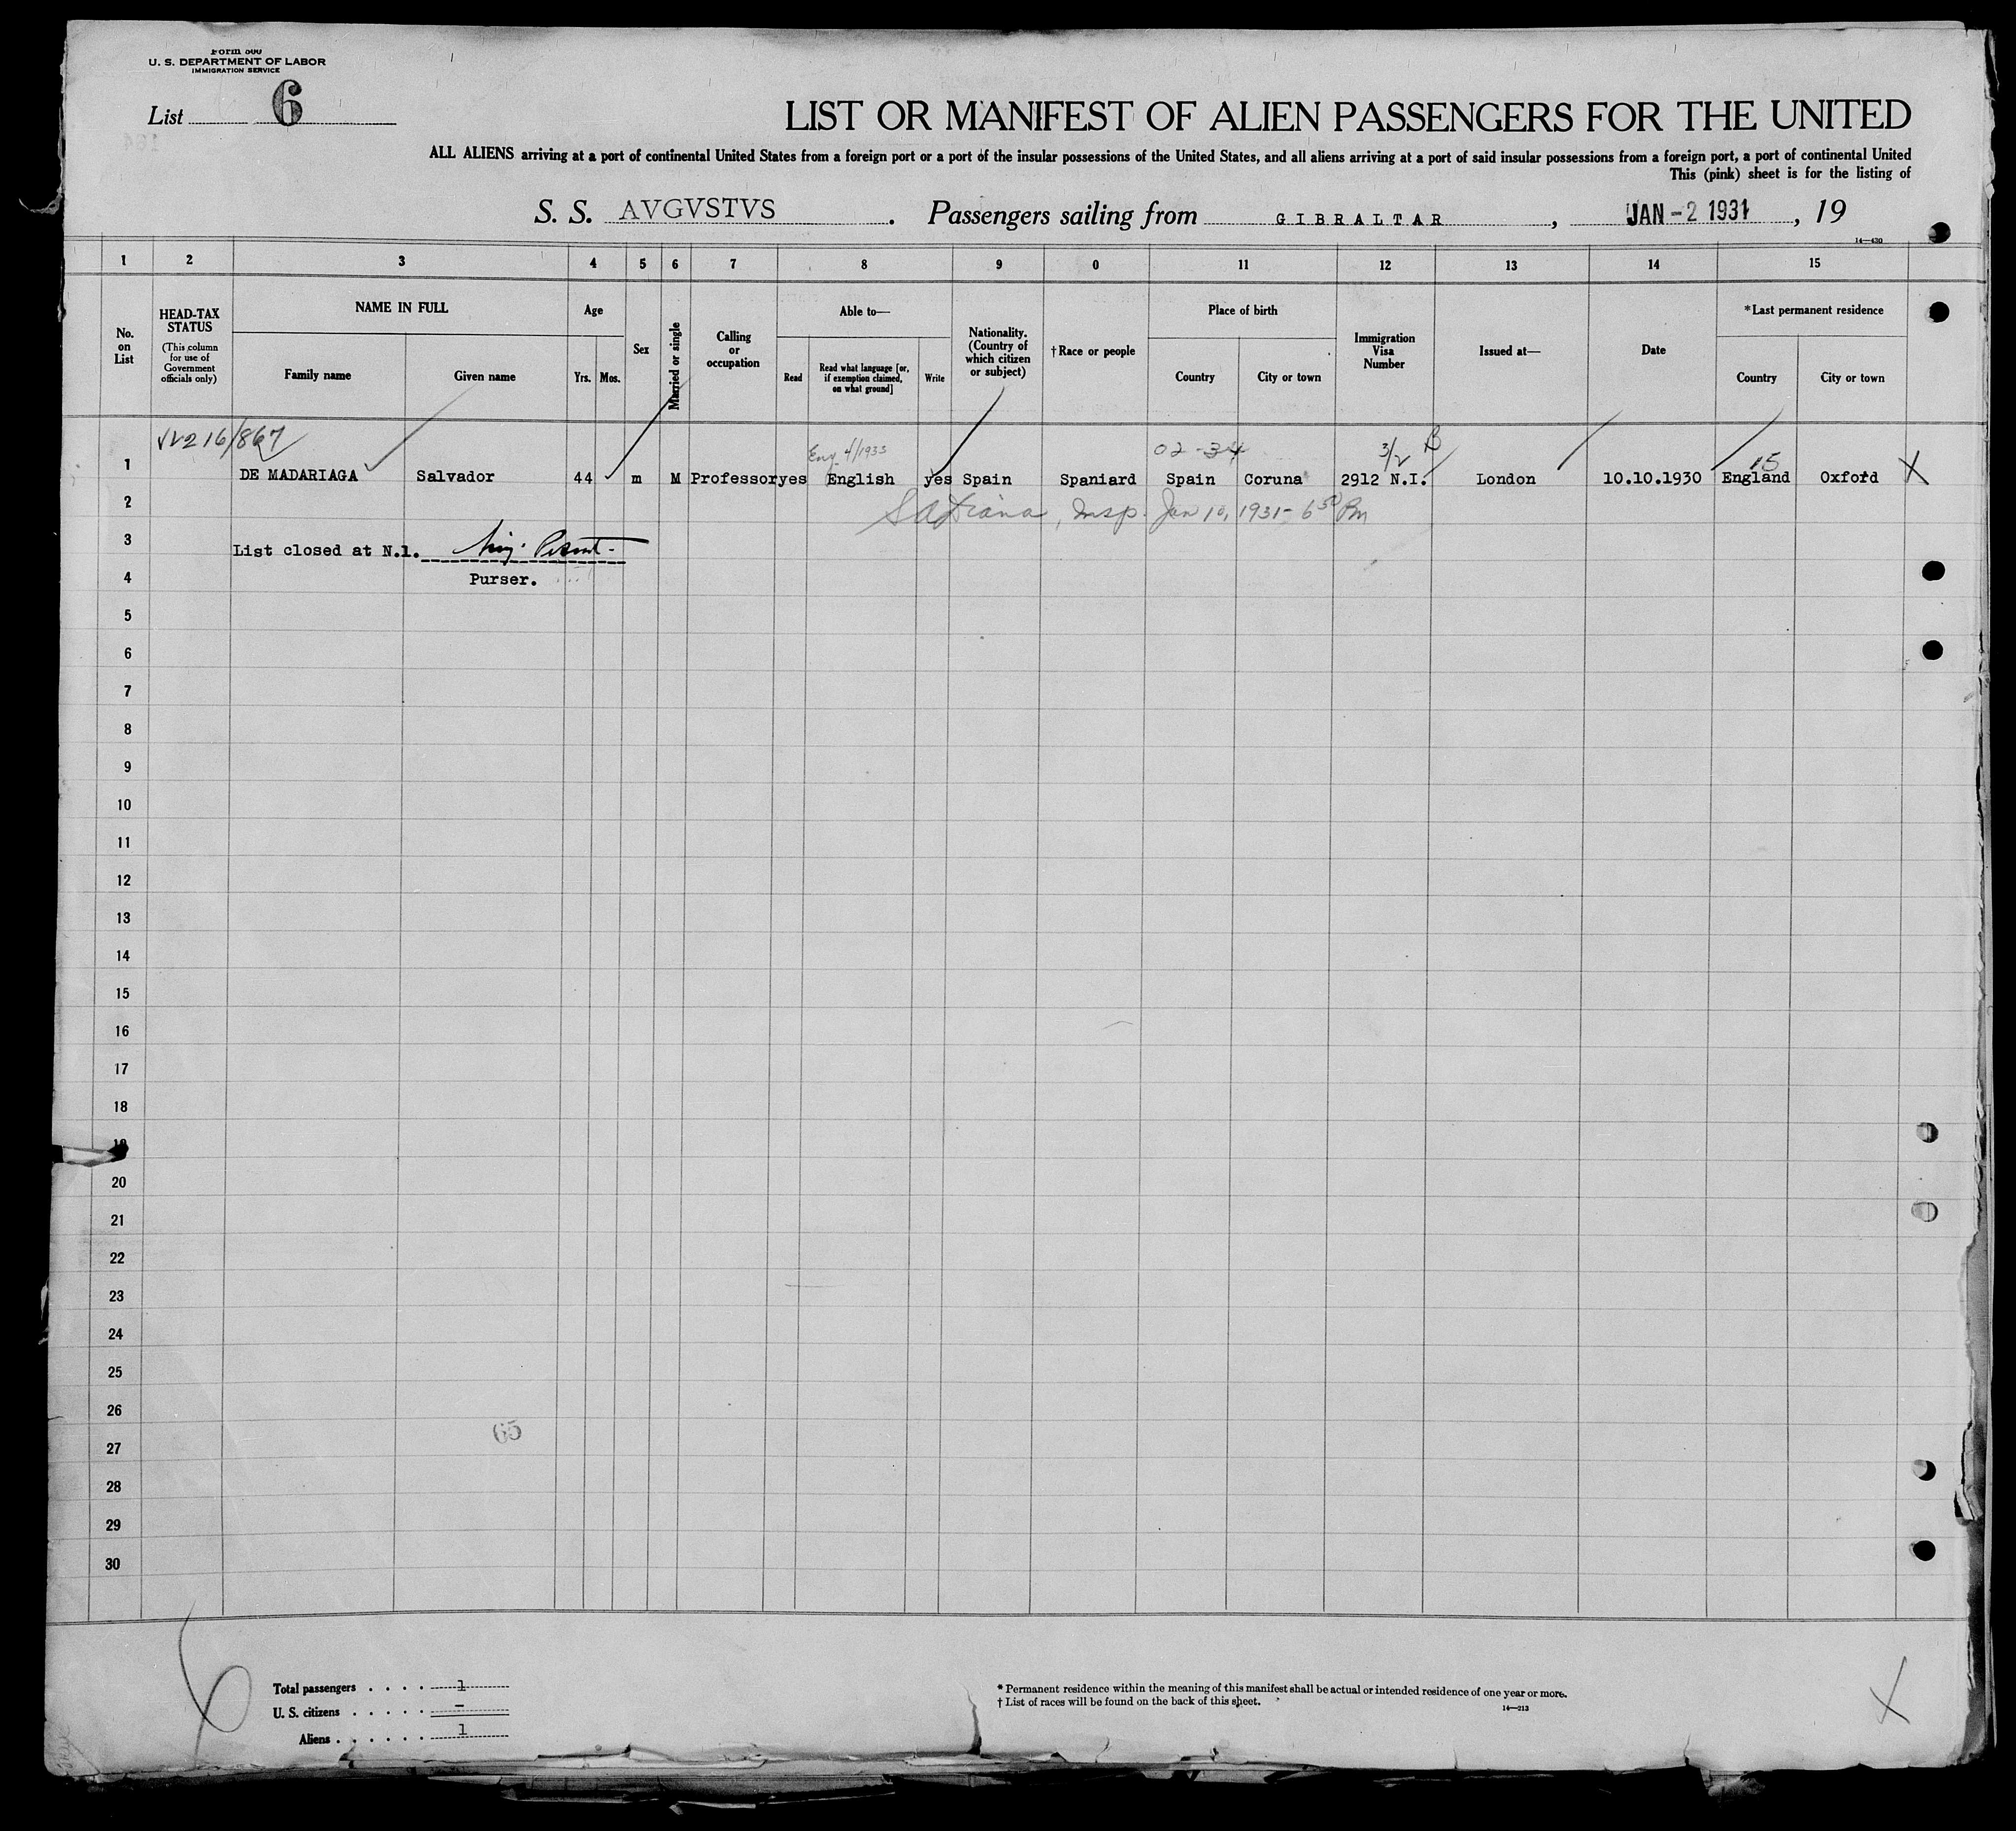 Form 500
U. S. DEPARTMENT OF LABOR
IMMIGRATION SERVICE
List 6
LIST OR MANIFEST OF ALIEN PASSENGERS FOR THE UNITED
ALL ALIENS arriving at a port of continental United States from a foreign port or a port of the insular possessions of the United States, and all aliens arriving at a port of said insular possessions from a foreign port, a port of continental United
This (pink) sheet is for the listing of
S. S. AVGVSTVS . Passengers sailing from GIBRALTAR , JAN -2 1931 , 19
14—430
1 2 3 4 5 6 7 8 9 0 11 12 13 14 15
No. on List
HEAD-TAX STATUS
(This column for use of Government officials only)
NAME IN FULL
Family name
Given name
Age
Yrs.
Mos.
Sex
Married or single
Calling or occupation
Able to—
Read
Read what language [or, if exemption claimed, on what ground]
Write
Nationality. (Country of which citizen or subject)
†Race or people
Place of birth
Country
City or town
Immigration Visa Number
Issued at—
Date
*Last permanent residence
Country
City or town
Eng 4/1933 02-34 3/2 B 15
1 DE MADARIAGA Salvador 44 m M Professor yes English yes Spain Spaniard Spain Coruna 2912 N.I. London 10.10.1930 England Oxford X
2 Insp. Jan 10, 1931 - 6 30 Pm
3 List closed at N.1.
4 Purser.
5
6
7
8
9
10
11
12
13
14
15
16
17
18
19
20
21
22
23
24
25
26
65
27
28
29
30
Total passengers . . . . 1
U. S. citizens . . . . . –
Aliens . . . . . . 1
* Permanent residence within the meaning of this manifest shall be actual or intended residence of one year or more.
† List of races will be found on the back of this sheet.
14—213
X